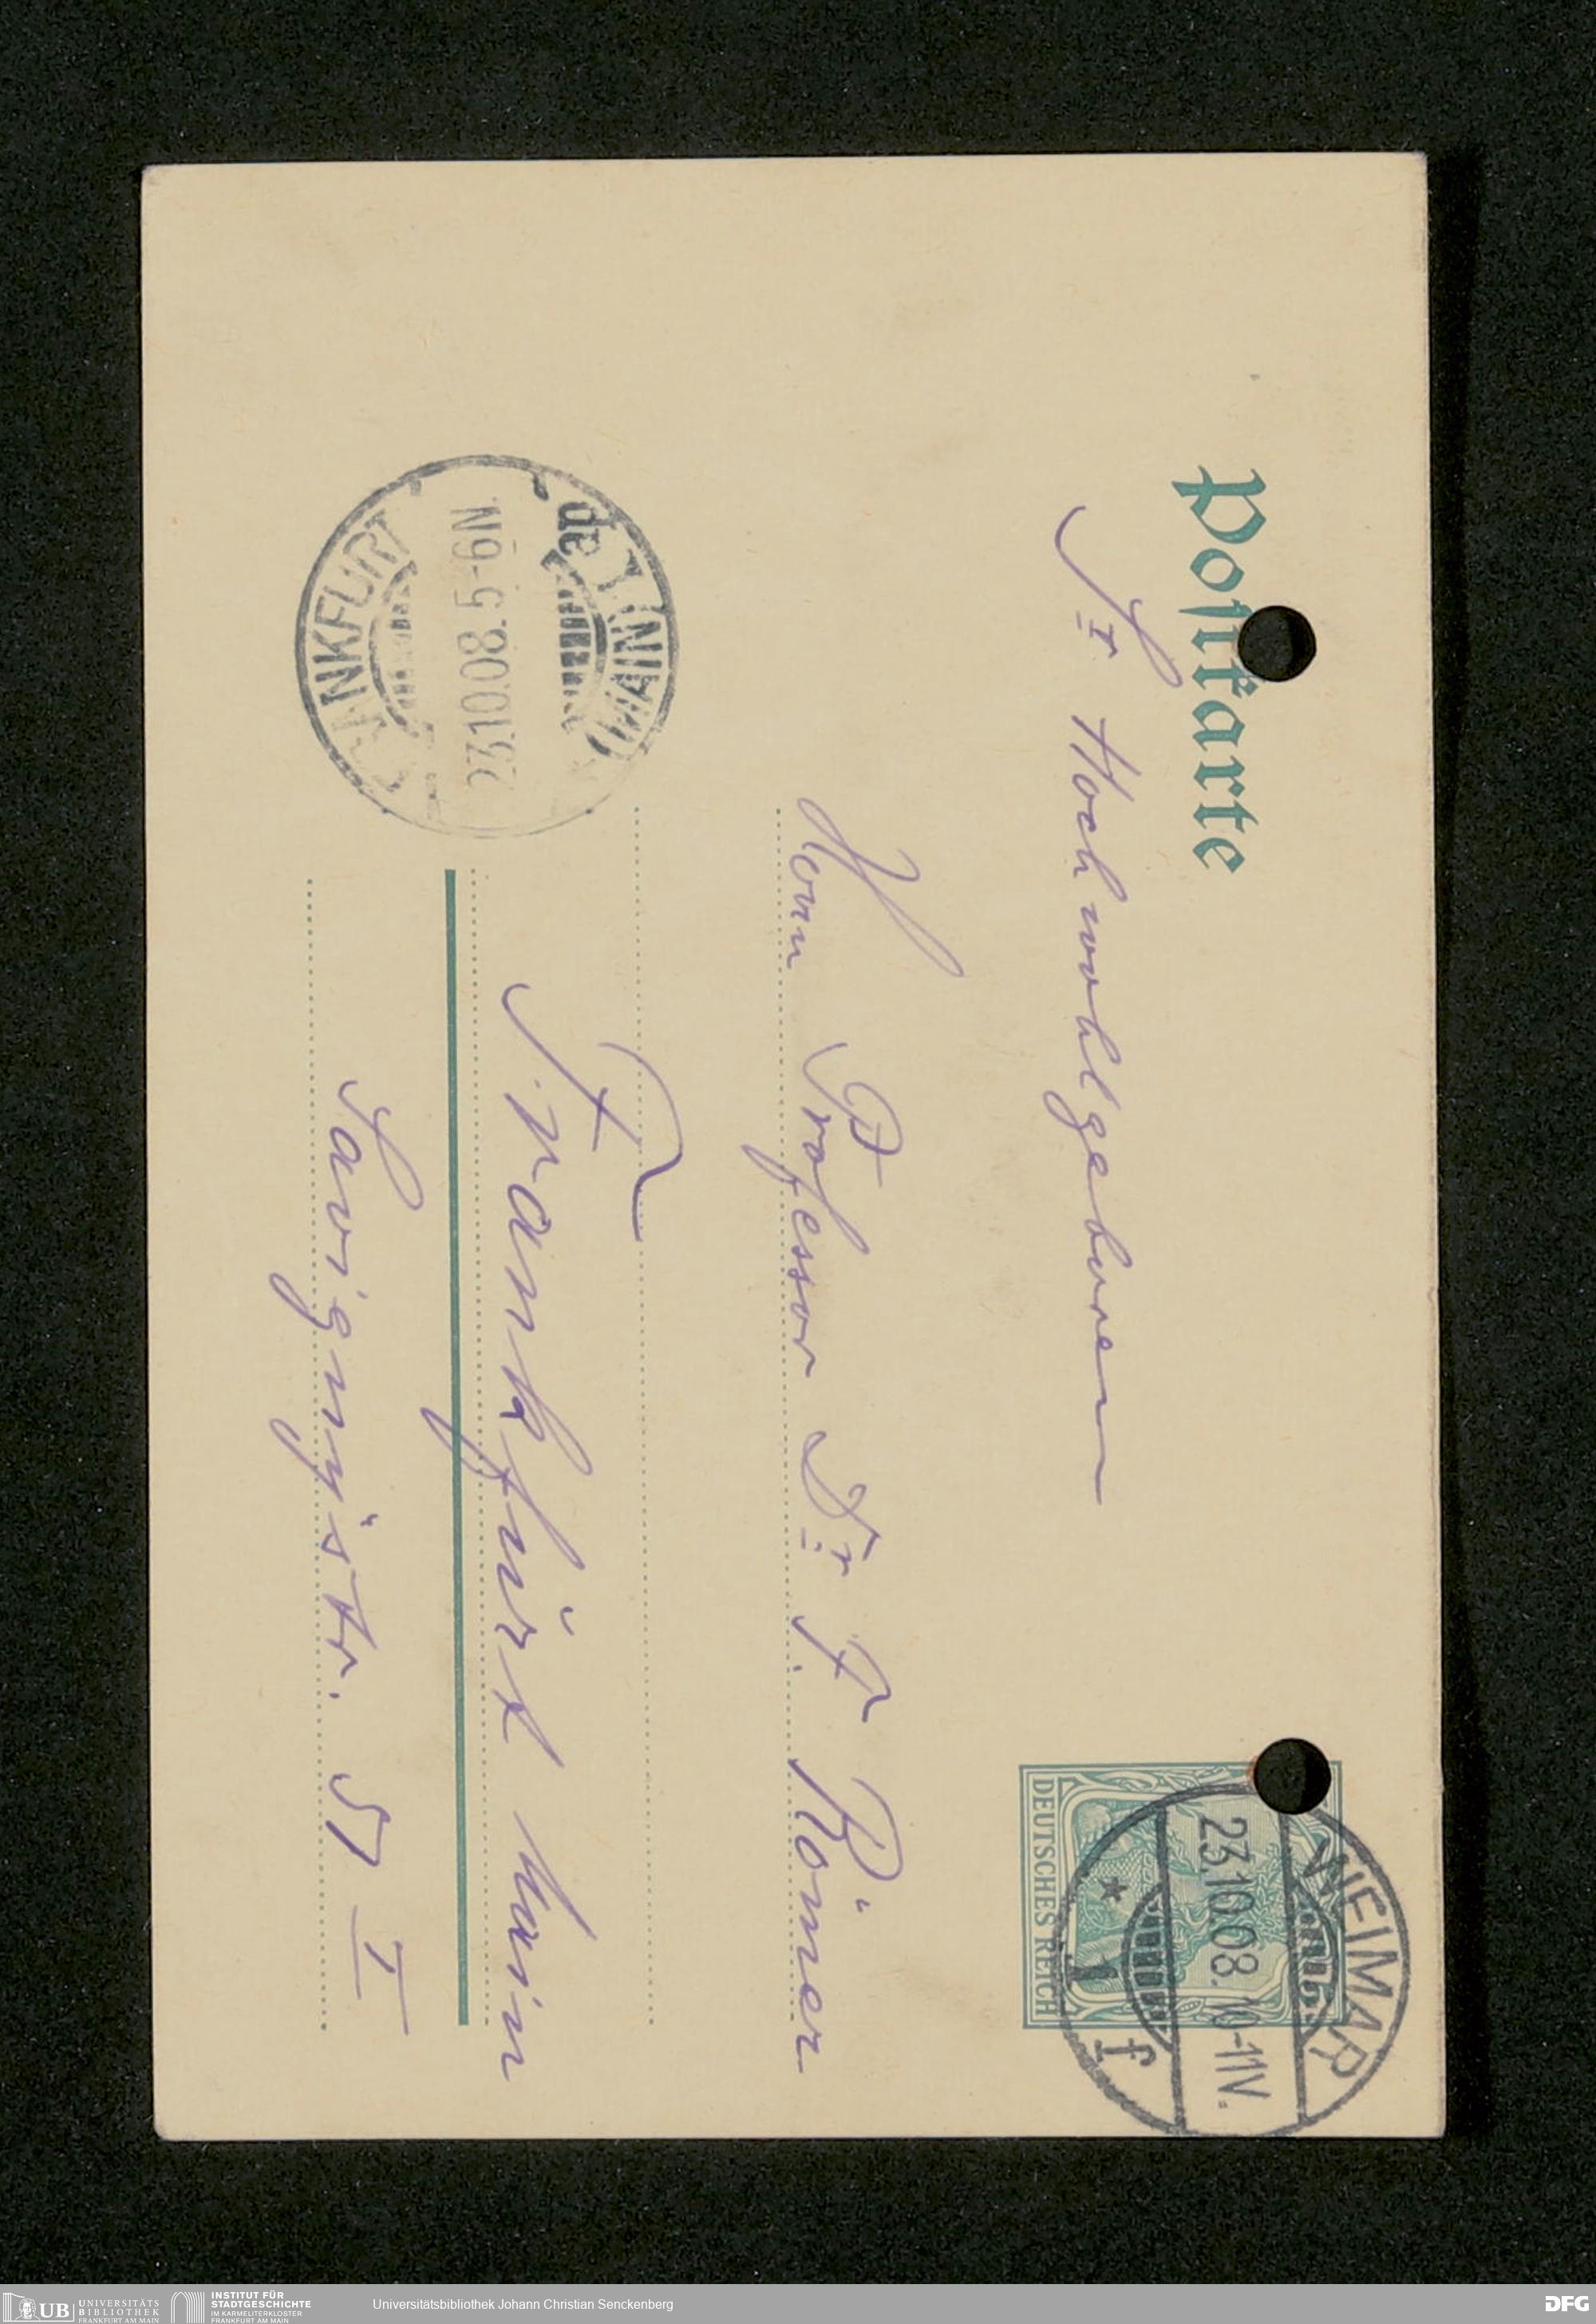 Postkarte
Sr Hochwohlgeboren
Herrn Professor Dr F. Römer
Frankfurt Main
Savignystr. 57 I
DEUTSCHES REICH
WEIMAR
23.10.08. 10-11V.
* 1 f
(MAIN) 1
ap
23.10.08. 5-6N.
UB UNIVERSITÄTS
BIBLIOTHEK
FRANKFURT AM MAIN
INSTITUT FÜR
STADTGESCHICHTE
IM KARMELITERKLOSTER
FRANKFURT AM MAIN
Universitätsbibliothek Johann Christian Senckenberg
DFG